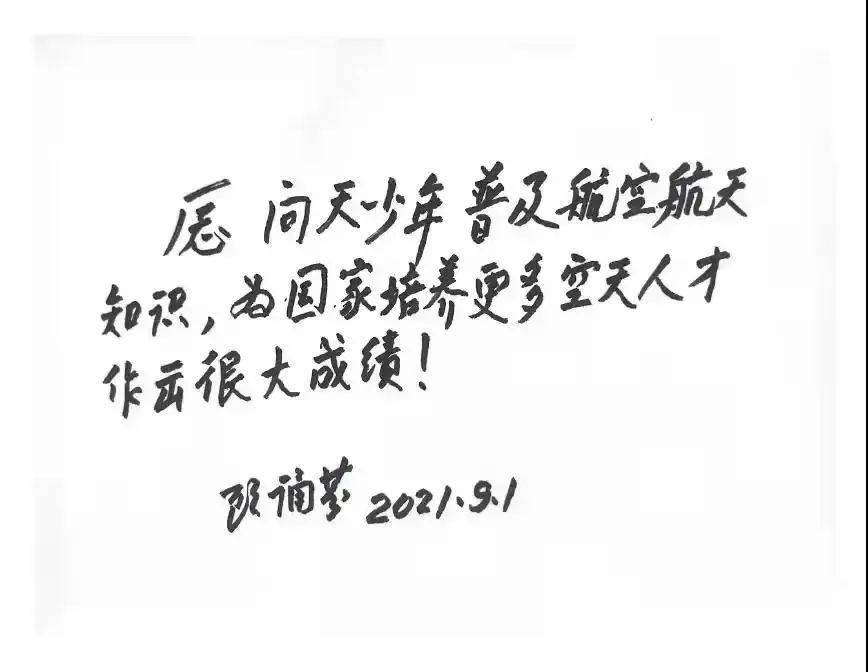 愿 问天少年普及航空航天
知识，为国家培养更多空天人才
作出很大成绩！
顾诵芬 2021.9.1